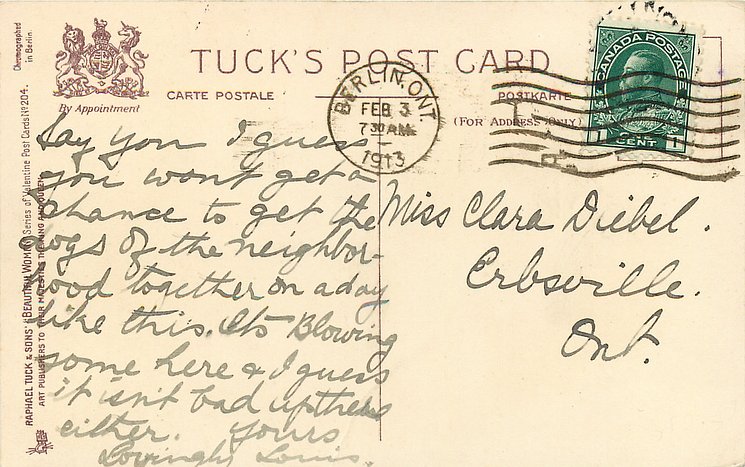 TUCK'S POST CARD
CARTE POSTALE
POSTKARTE
(FOR ADDRESS ONLY)
By Appointment
Chromographed
in Berlin.
RAPHAEL TUCK & SONS' "BEAUTIFUL WOMAN" Series of Valentine Post Cards No 204.
ART PUBLISHERS TO THEIR MAJESTIES THE KING AND QUEEN
BERLIN. ONT.
FEB 3
7 30 AM
1913
CANADA POSTAGE
1 CENT 1
Say you I guess
you wont get a
chance to get the
dogs of the neighbor-
hood together on a day
like this. Its Blowing
some here & I guess
it isn't bad up there
either. Yours
Lovingly Louis.
Miss Clara Diebel.
Erbsville.
Ont.